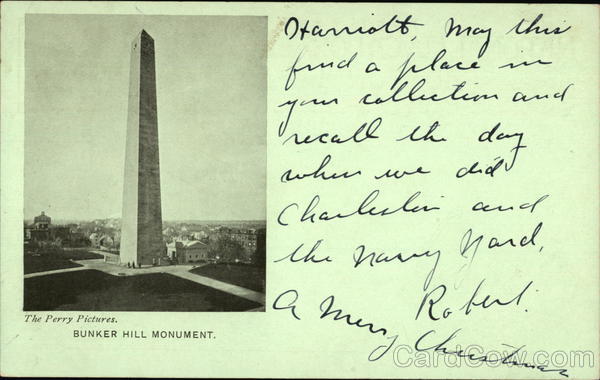 Harriott, May this
find a place in
your collection and
recall the day
when we did
Charlestin and
the Navy Yard,
Robert.
A Merry Christmas
The Perry Pictures.
BUNKER HILL MONUMENT.
CardCow.com